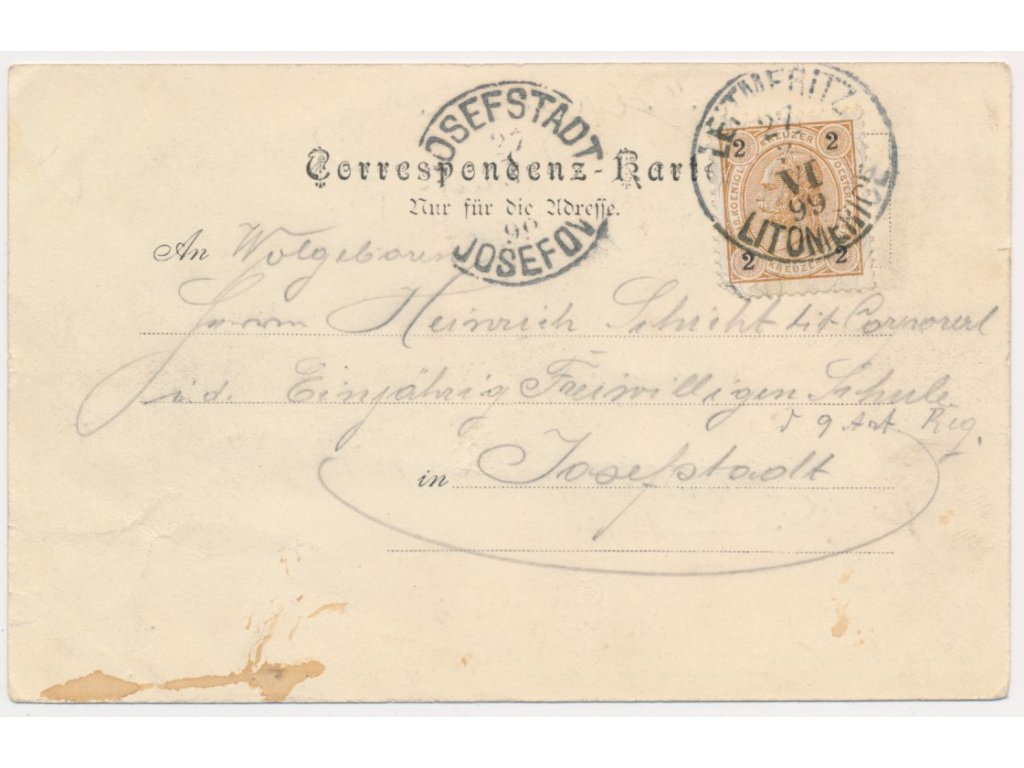 JOSEFSTADT
27
JOSEFOV
LEITMERITZ
27
VI
99
LITOMĚŘICE
2 KREUZER 2
2 KREUZER 2
Correspondenz-Karte
Nur für die Adresse.
An Wolgeboren
Herrn Heinrich Schicht tit Corporal
i. d. Einjährig Freiwilligen Schule
d 9 Art Reg.
in Josefstadt